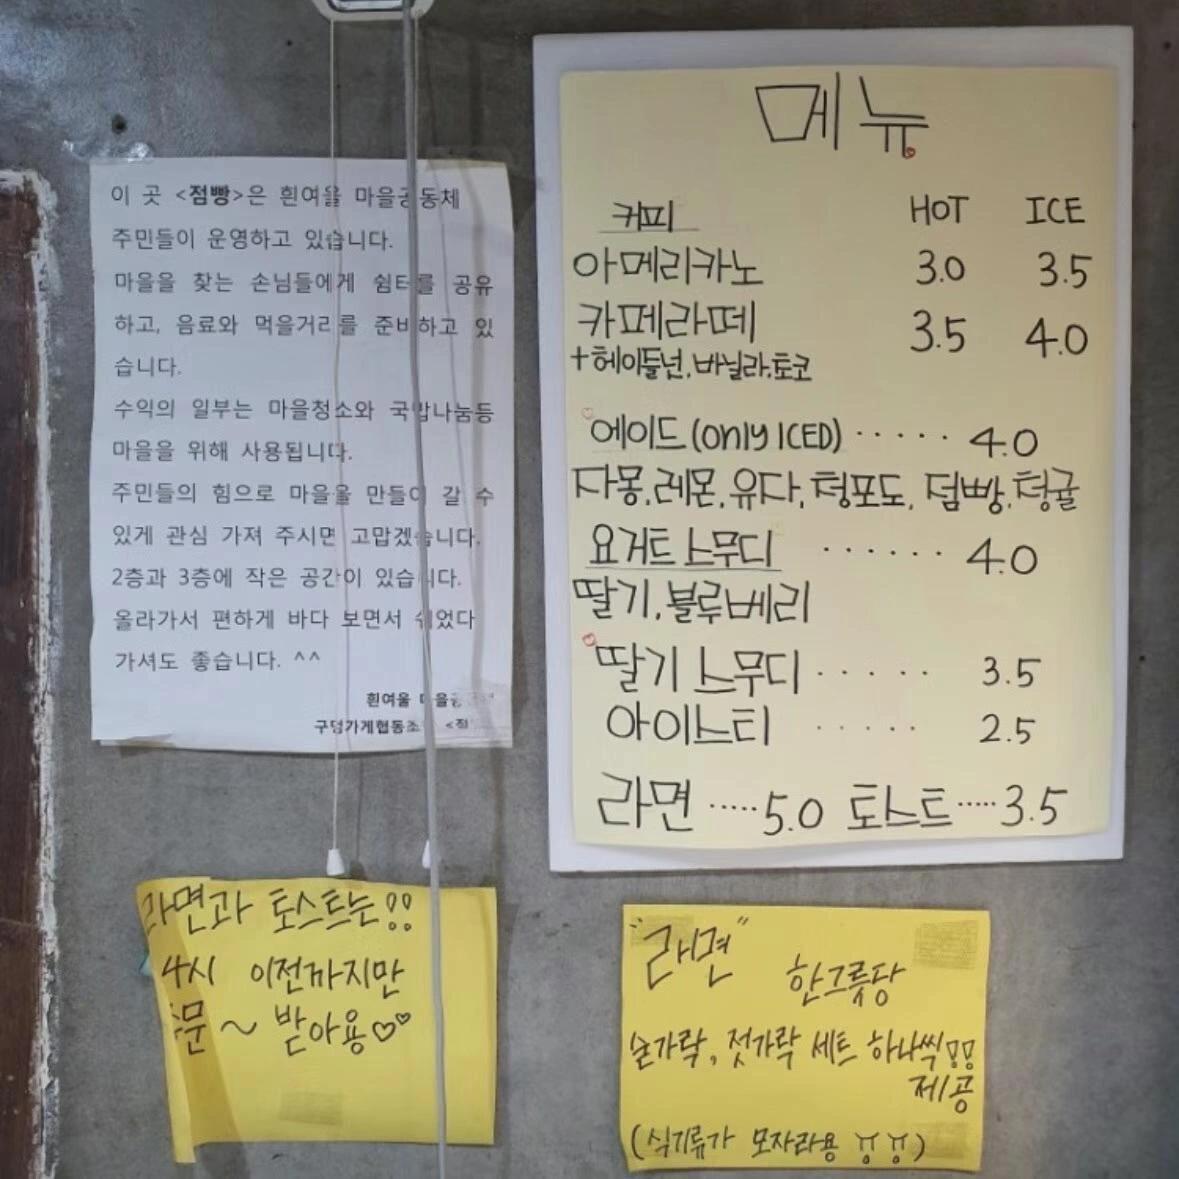 이 곳 <점빵>은 흰여울 마을공동체
주민들이 운영하고 있습니다.
마을을 찾는 손님들에게 쉼터를 공유
하고, 음료와 먹을거리를 준비하고 있
습니다.
수익의 일부는 마을청소와 국밥나눔등
마을을 위해 사용됩니다.
주민들의 힘으로 마을을 만들어 갈 수
있게 관심 가져 주시면 고맙겠습니다.
2층과 3층에 작은 공간이 있습니다.
올라가서 편하게 바다 보면서 쉬었다
가셔도 좋습니다. ^^
흰여울
메뉴
커피 HOT ICE
아메리카노 3.0 3.5
카페라떼 3.5 4.0
+헤이즐넛.바닐라.토코
에이드(only ICED) ····· 4.0
자몽.레몬.유자,청포도,점빵,청귤
요거트 스무디 ······ 4.0
딸기.블루베리
딸기 스무디 ····· 3.5
아이스티 ····· 2.5
라면 ·····5.0 토스트·····3.5
라면과 토스트는!!
4시 이전까지만
주문~ 받아용♡♡
"라면"
한그릇당
숟가락, 젓가락 세트 하나씩!!
제공
(식기류가 모자라용 ㅠㅠ)